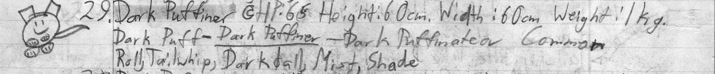 29. Dark Puffiner HP:65 Height:60cm. Width:60cm Weight:1kg.
Dark Puff-Dark Puffiner-Dark Puffinator Common
Roll, Tailwhip, Dark Ball, Mist, Shade